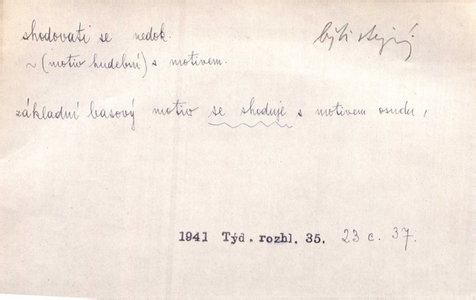 shodovati se nedok.
býti stejný
~ (motiv hudební) s motivem.
základní basový motiv se shoduje s motivem osudu,
1941 Týd. rozhl. 35. 23 c. 37.